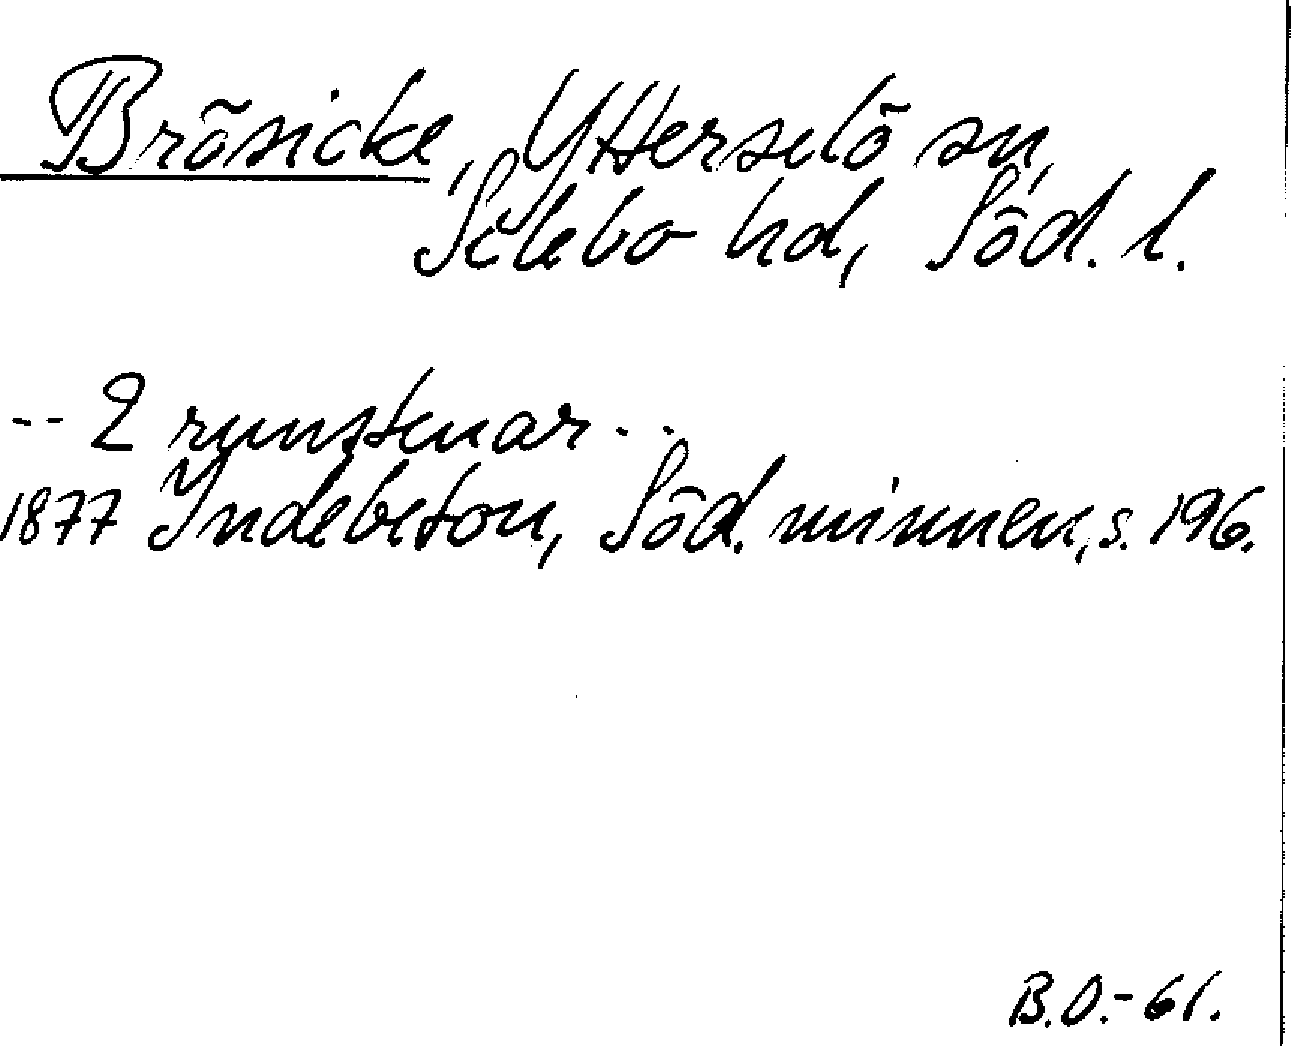 Brösicke, Ytterselö sn,
Selebo hd, Söd. l.
-- 2 runstenar --
1877 Indebetou, Söd. minnen, s. 196.
B.O.-61.